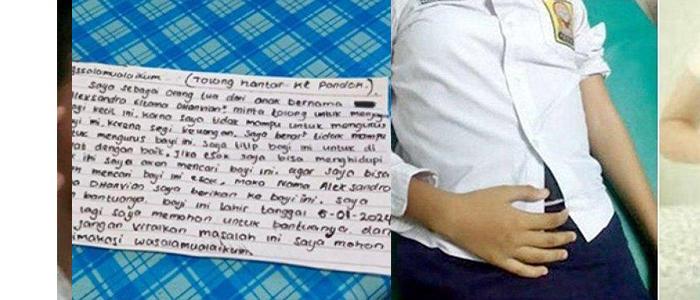 Assalamualaikum .. (Tolong hantar ke pondok.)
Saya sebagai orang tua dari anak bernama
Aleksandro Eltama Dhanvian² minta tolong untuk
bayi kecil ini. karna saya tidak mampu untuk mengurus
bayi ini. karena segi keuangan. Saya benar² tidak mampu
untuk mengurus bayi ini. saya titip bayi ini untuk di
dengan baik. Jika esok saya bisa menghidupi
ini saya akan mencari bayi ini. agar saya bisa
mencari bayi ini esok. maka nama Aleksandro
Dhanvian saya berikan ke bayi ini. saya
bantuanya. bayi ini lahir tanggal 6-01-2024
lagi saya memohon untuk bantuanya dan
jangan viralkan masalah ini saya mohon
wasalamualaikum